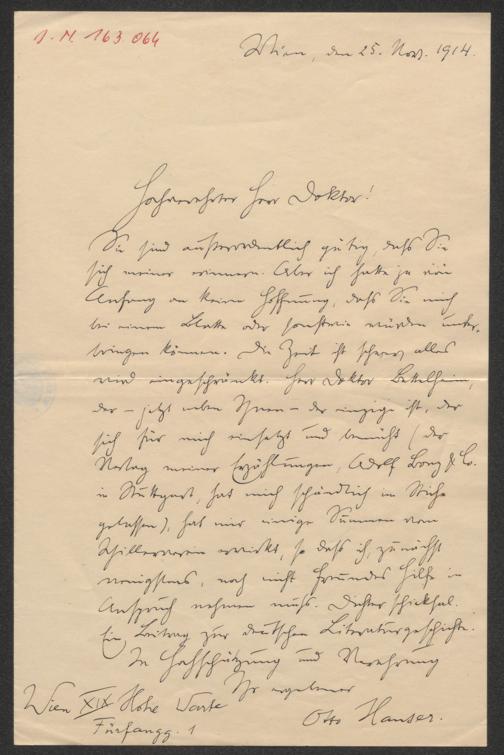 J. N. 163 064
Wien, den 25. Nov. 1914.
Hochverehrter Herr Doktor!
Sie sind außerordentlich gütig, daß Sie
sich meiner erinnern. Aber ich hatte ja von
Anfang an keine Hoffnung, daß Sie mich
bei einem Blatte oder sonstwie würden unter-
bringen können. Die Zeit ist schwer, alles
wird eingeschränkt. Herr Doktor Bettelheim,
der – jetzt neben Ihnen – der einzige ist, der
sich für mich einsetzt und bemüht (der
Verlag meiner Erzählungen, Adolf Bonz & Co.
in Stuttgart, hat mich schändlich im Stiche
gelassen), hat mir einige Summen vom
Schillerverein erwirkt, so daß ich, zunächst
wenigstens, noch nicht Freundes Hilfe in
Anspruch nehmen muß. Dichterschicksal.
Ein Beitrag zur deutschen Literaturgeschichte.
In Hochschätzung und Verehrung
Ihr ergebener
Otto Hauser.
Wien XIX Hohe Warte
Fürfangg. 1